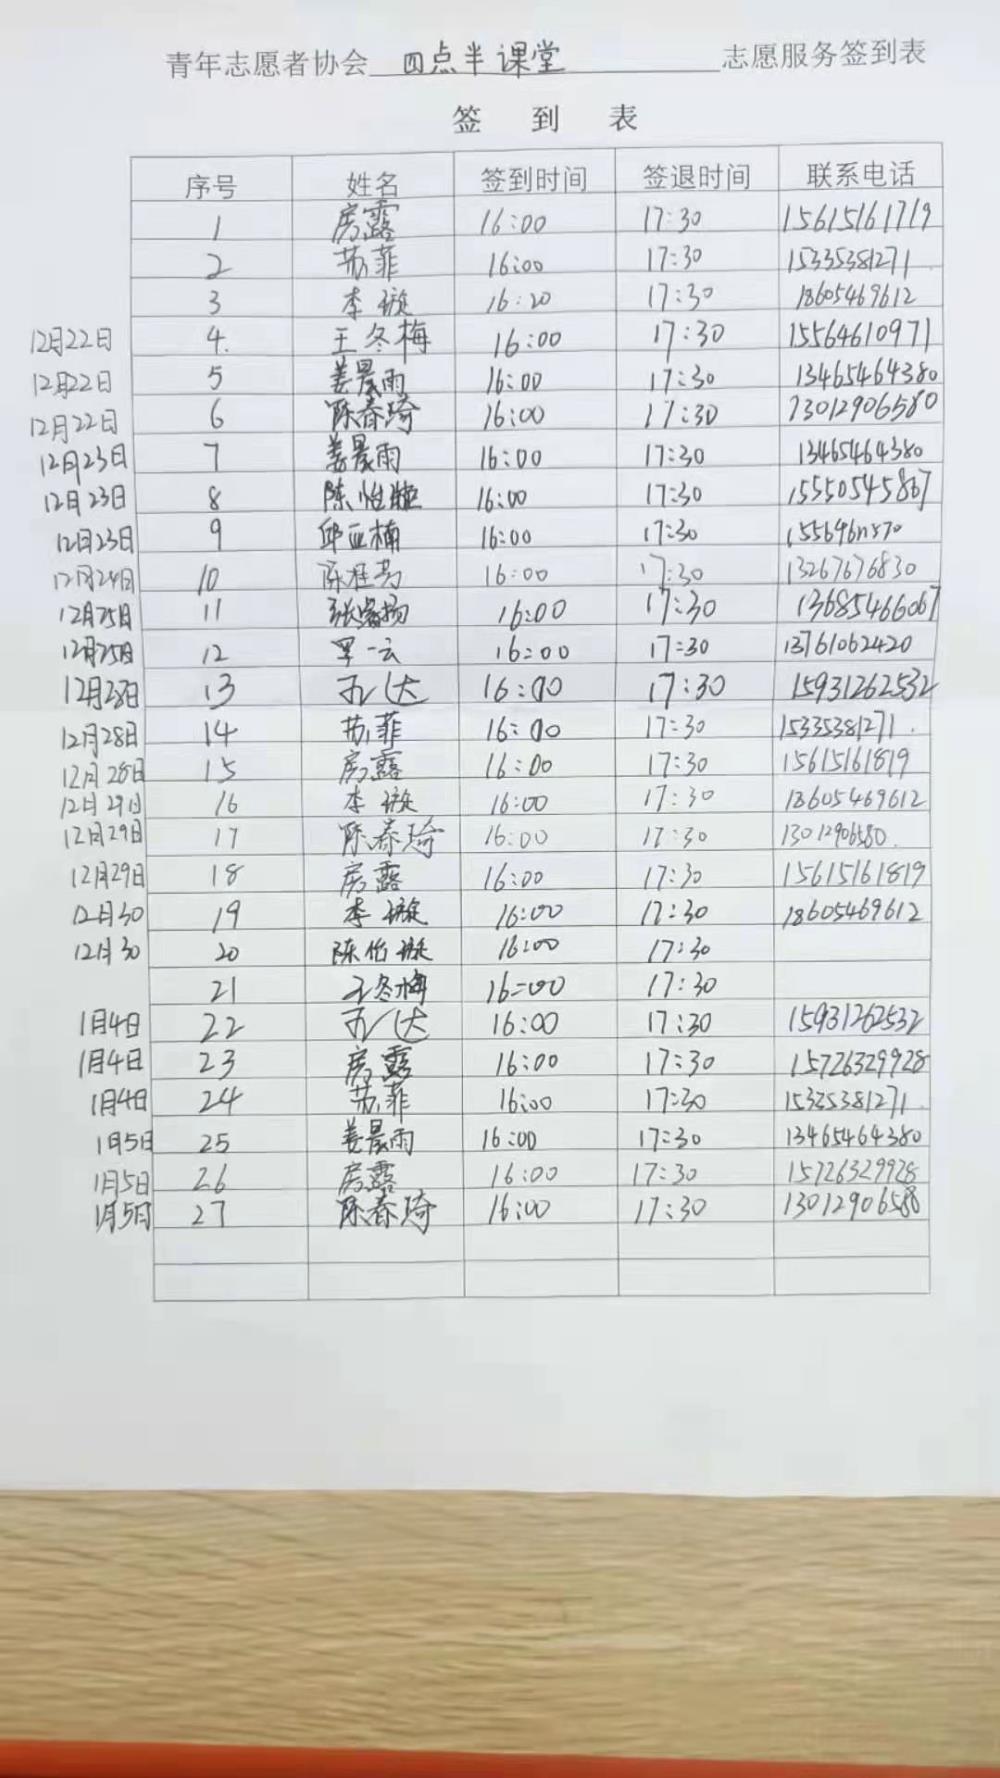 青年志愿者协会 四点半课堂 志愿服务签到表
签 到 表
序号 姓名 签到时间 签退时间 联系电话
1 房露 16:00 17:30 15615161719
2 苏菲 16:00 17:30 15335381271
3 李璇 16:20 17:30 18605469612
12月22日 4. 王冬梅 16:00 17:30 15564610971
12月22日 5 姜晨雨 16:00 17:30 13465464380
12月22日 6 陈春琦 16:00 17:30 73012906580
12月23日 7 姜晨雨 16:00 17:30 13465464380
12月23日 8 陈怡 16:00 17:30 15550545867
12月23日 9 邱亚楠 16:00 17:30
12月24日 10 陈桂 16:00 17:30 13267676830
12月25日 11 张睿扬 16:00 17:30 13685466067
12月25日 12 一云 16:00 17:30 13761062420
12月28日 13 达 16:00 17:30 15931262532
12月28日 14 苏菲 16:00 17:30 15335381271
12月28日 15 房露 16:00 17:30 15615161819
12月29日 16 李璇 16:00 17:30 18605469612
12月29日 17 陈春琦 16:00 17:30 13012906580
12月29日 18 房露 16:00 17:30 15615161819
12月30 19 李璇 16:00 17:30 18605469612
12月30 20 陈佑璇 16:00 17:30
21 王冬梅 16:00 17:30
1月4日 22 达 16:00 17:30 15931262532
1月4日 23 房露 16:00 17:30 15726329928
1月4日 24 苏菲 16:00 17:30 15335381271
1月5日 25 姜晨雨 16:00 17:30 13465464380
1月5日 26 房露 16:00 17:30 15726329928
1月5日 27 陈春琦 16:00 17:30 13012906588